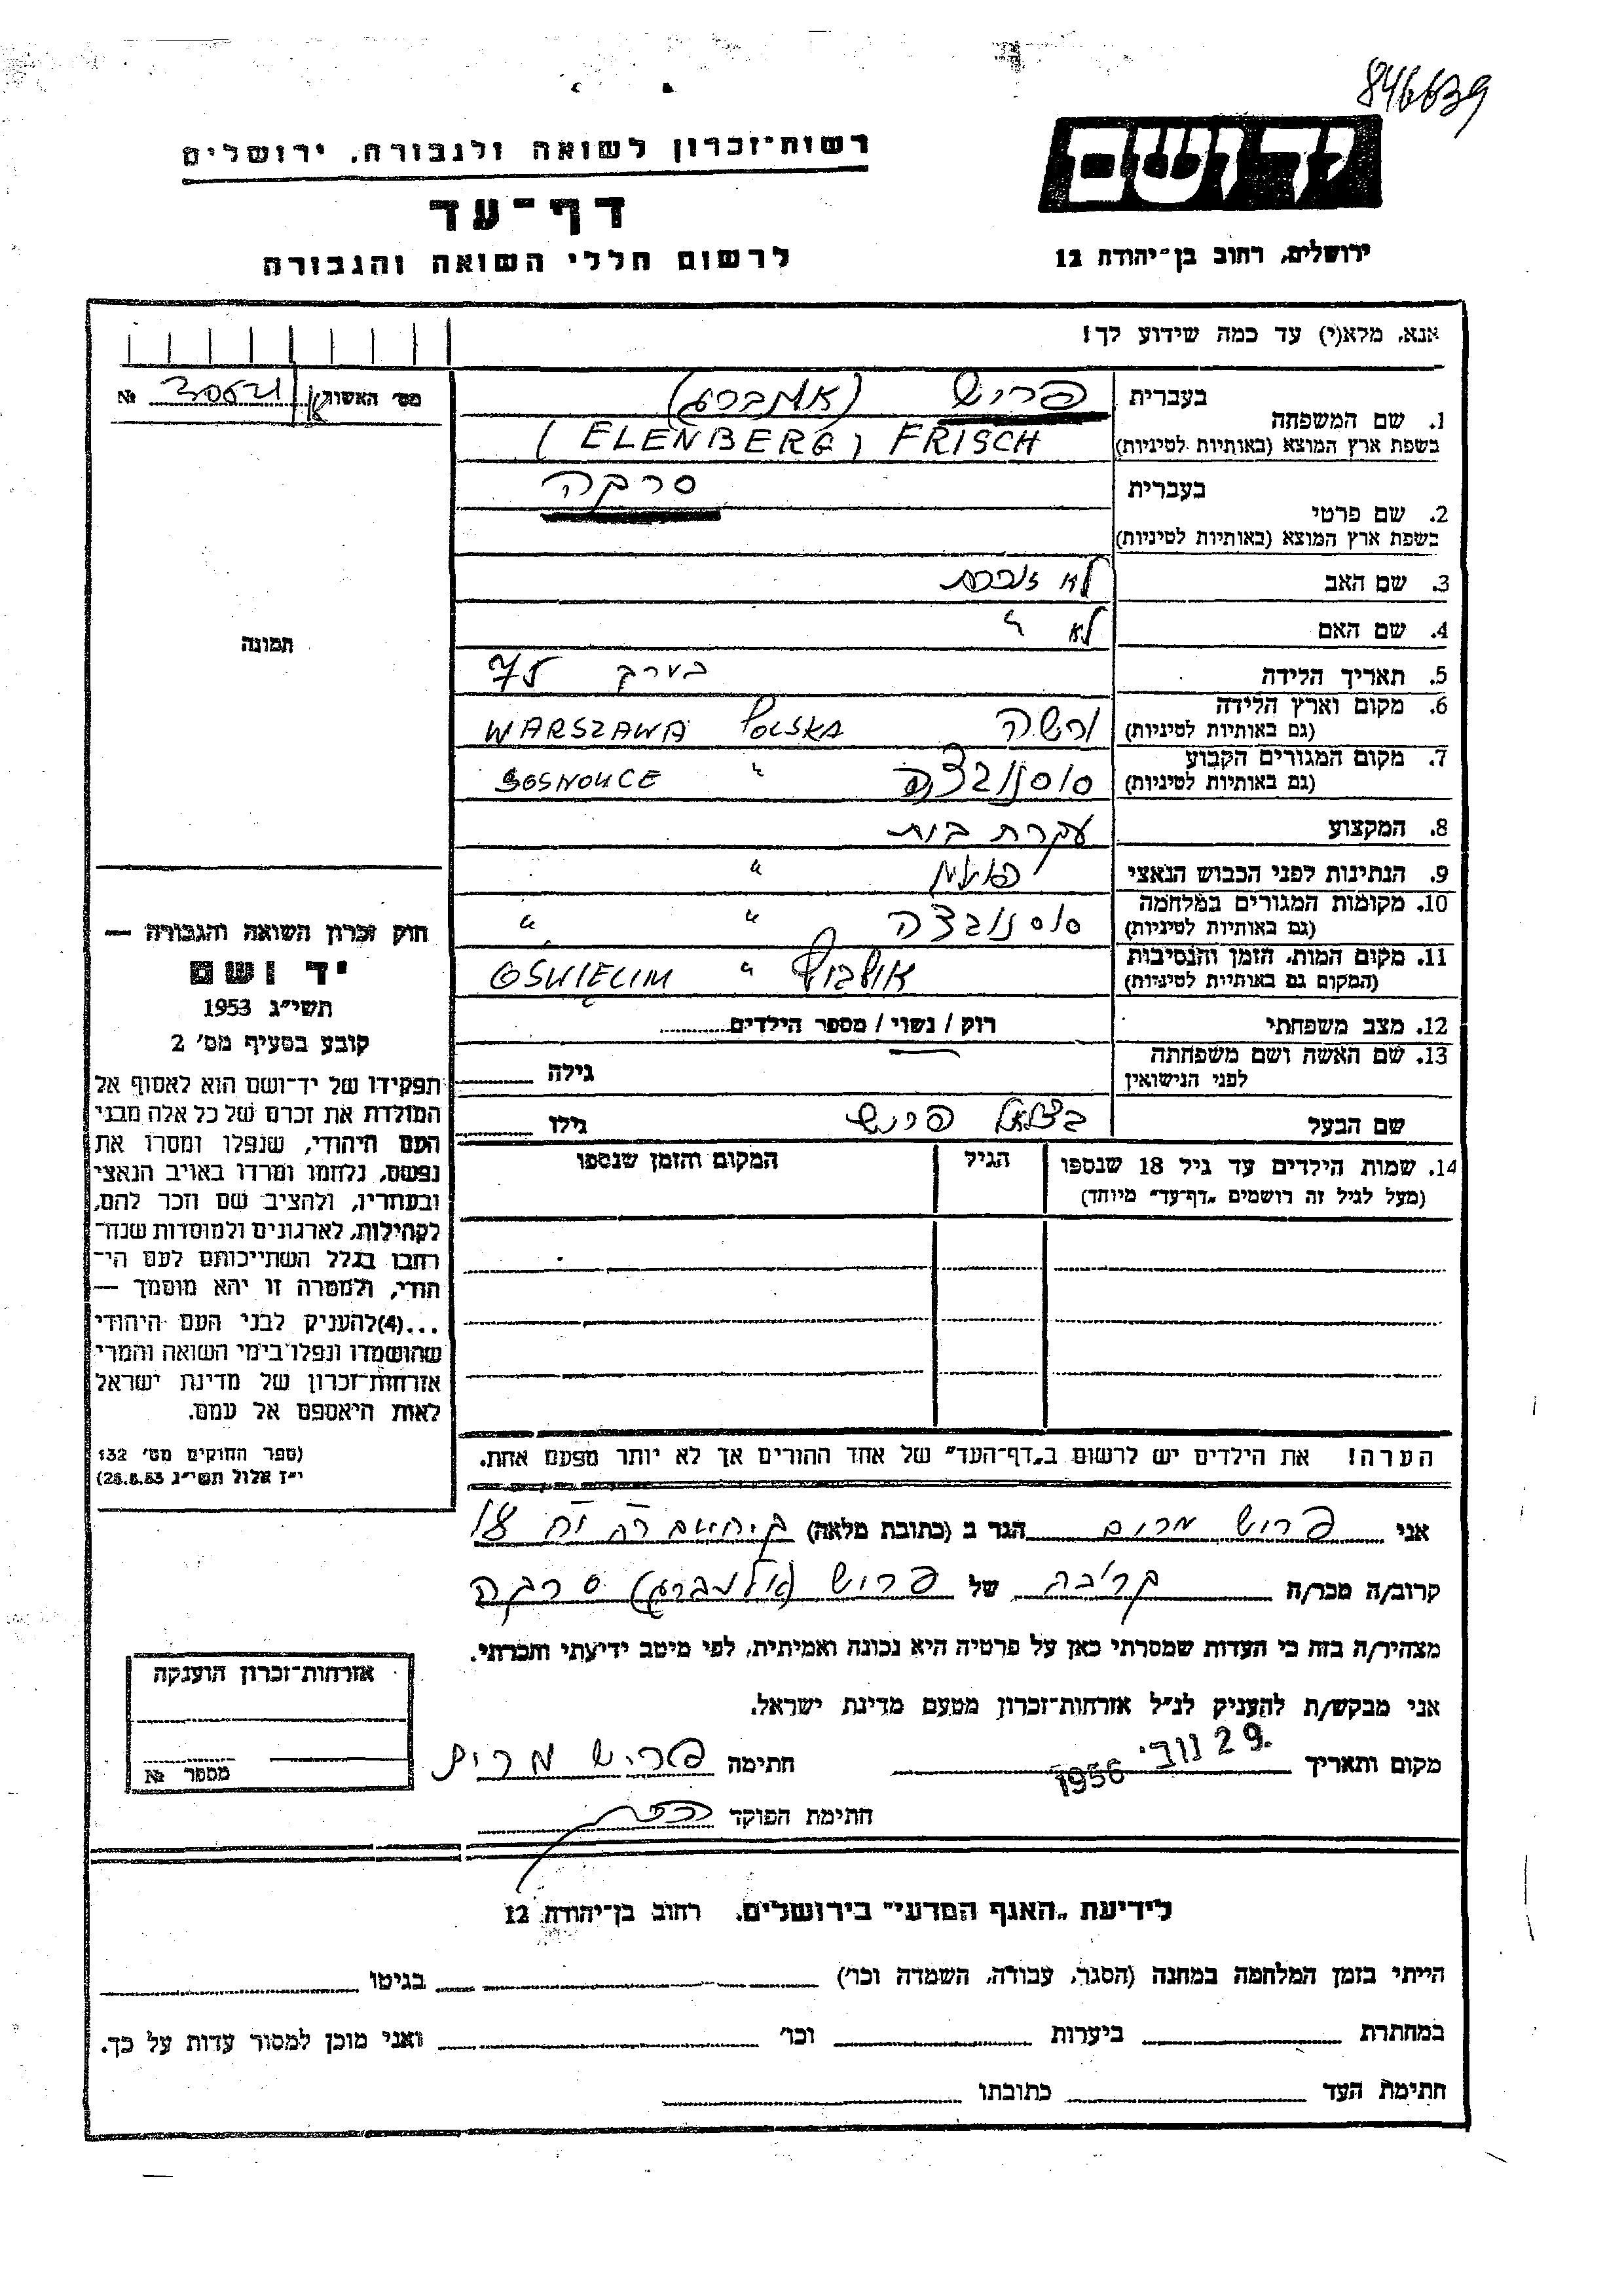 846639
יד ושם
רשות־זכרון לשואה ולגבורה, ירושלים
דף־עד
לרשום חללי השואה והגבורה
ירושלים, רחוב בן־יהודה 12
אנא, מלא(י) עד כמה שידוע לך!
מס' האשור
№
1. שם המשפחה
בעברית פריש
בשפת ארץ המוצא (באותיות לטיניות) (ELENBERG) FRISCH
2. שם פרטי
בעברית סרקה
בשפת ארץ המוצא (באותיות לטיניות)
3. שם האב לא זוכרת
4. שם האם לא "
תמונה
5. תאריך הלידה בערך 75
6. מקום וארץ הלידה ורשה WARSZAWA POLSKA
(גם באותיות לטיניות)
7. מקום המגורים הקבוע סוסנוביצה " SOSNOUCE
(גם באותיות לטיניות)
8. המקצוע עקרת בית
9. הנתינות לפני הכבוש הנאצי "
10. מקומות המגורים במלחמה סוסנובצה " "
(גם באותיות לטיניות)
11. מקום המות, הזמן והנסיבות אושביץ " OSWIĘCIM
(המקום גם באותיות לטיניות)
12. מצב משפחתי רוק / נשוי / מספר הילדים
13. שם האשה ושם משפחתה
לפני הנישואין גילה
שם הבעל בצלאל פריש גילו
14. שמות הילדים עד גיל 18 שנספו הגיל המקום והזמן שנספו
(מעל לגיל זה רושמים „דף־עד" מיוחד)
חוק זכרון השואה והגבורה —
יד ושם
תשי״ג 1953
קובע בסעיף מס' 2
תפקידו של יד־ושם הוא לאסוף אל
המולדת את זכרם של כל אלה מבני
העם היהודי, שנפלו ומסרו את
נפשם, נלחמו ומרדו באויב הנאצי
ובעוזריו, ולהציב שם וזכר להם,
לקהילות, לארגונים ולמוסדות שנח־
רבו בגלל השתייכותם לעם הי־
הודי, ולמטרה זו יהא מוסמך —
...(4) להעניק לבני העם היהודי
שהושמדו ונפלו בימי השואה והמרי
אזרחות־זכרון של מדינת ישראל
לאות היאספם אל עמם.
(ספר החוקים מס' 132
י״ז אלול תשי״ג 28.8.53)
הערה! את הילדים יש לרשום ב„דף־העד" של אחד ההורים אך לא יותר מפעם אחת.
אני פריש מרים הגר ב (כתובת מלאה)
קרוב/ה מכר/ה קריבה של פריש סרקה
מצהיר/ה בזה כי העדות שמסרתי כאן על פרטיה היא נכונה ואמיתית, לפי מיטב ידיעתי והכרתי.
אני מבקש/ת להעניק לנ״ל אזרחות־זכרון מטעם מדינת ישראל.
מקום ותאריך 29 נוב' 1956 חתימה פריש מרים
חתימת הפוקד
אזרחות־זכרון הוענקה
מספר №
לידיעת „האגף המדעי" בירושלים, רחוב בן־יהודה 12
הייתי בזמן המלחמה במחנה (הסגר, עבודה, השמדה וכו') בגיטו
במחתרת ביערות וכו' ואני מוכן למסור עדות על כך.
חתימת העד כתובתו